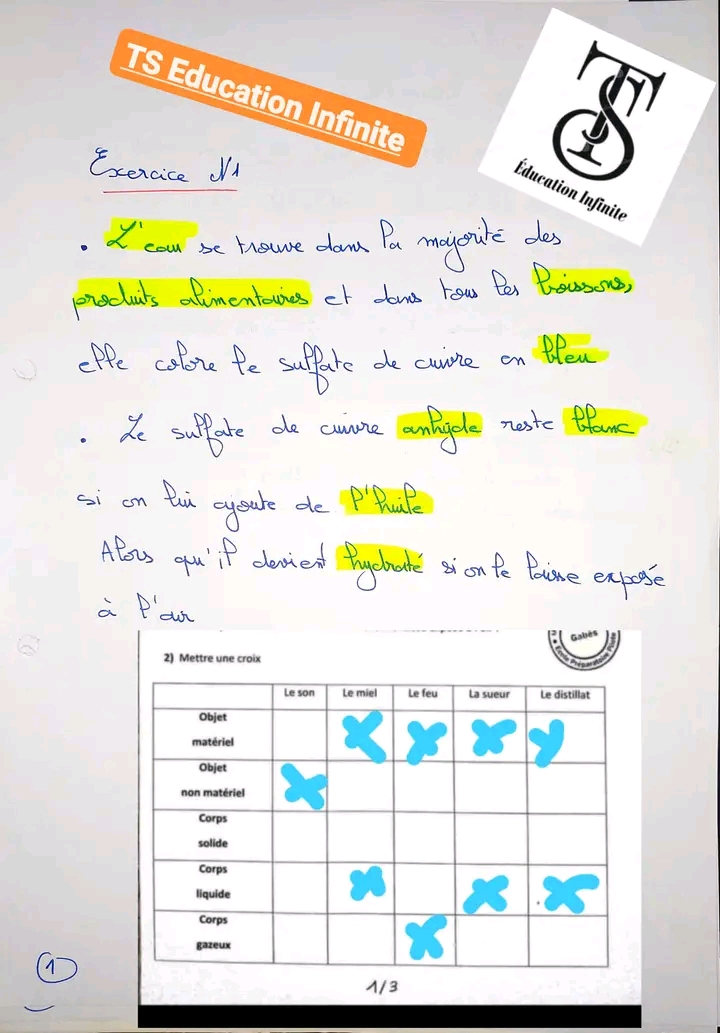 TS Education Infinite
TS
Éducation Infinite
Exercice N1
. L'eau se trouve dans la majorité des
produits alimentaires et dans tous les boissons,
elle colore le sulfate de cuivre en bleu
. Le sulfate de cuivre anhyde reste blanc
si on lui ajoute de l'huile
Alors qu'il devient hydraté si on le laisse exposé
à l'air
Gabès
2) Mettre une croix
Le son Le miel Le feu La sueur Le distillat
Objet
matériel X X X X
Objet
non matériel X
Corps
solide
Corps
liquide X X X
Corps
gazeux X
1/3
1